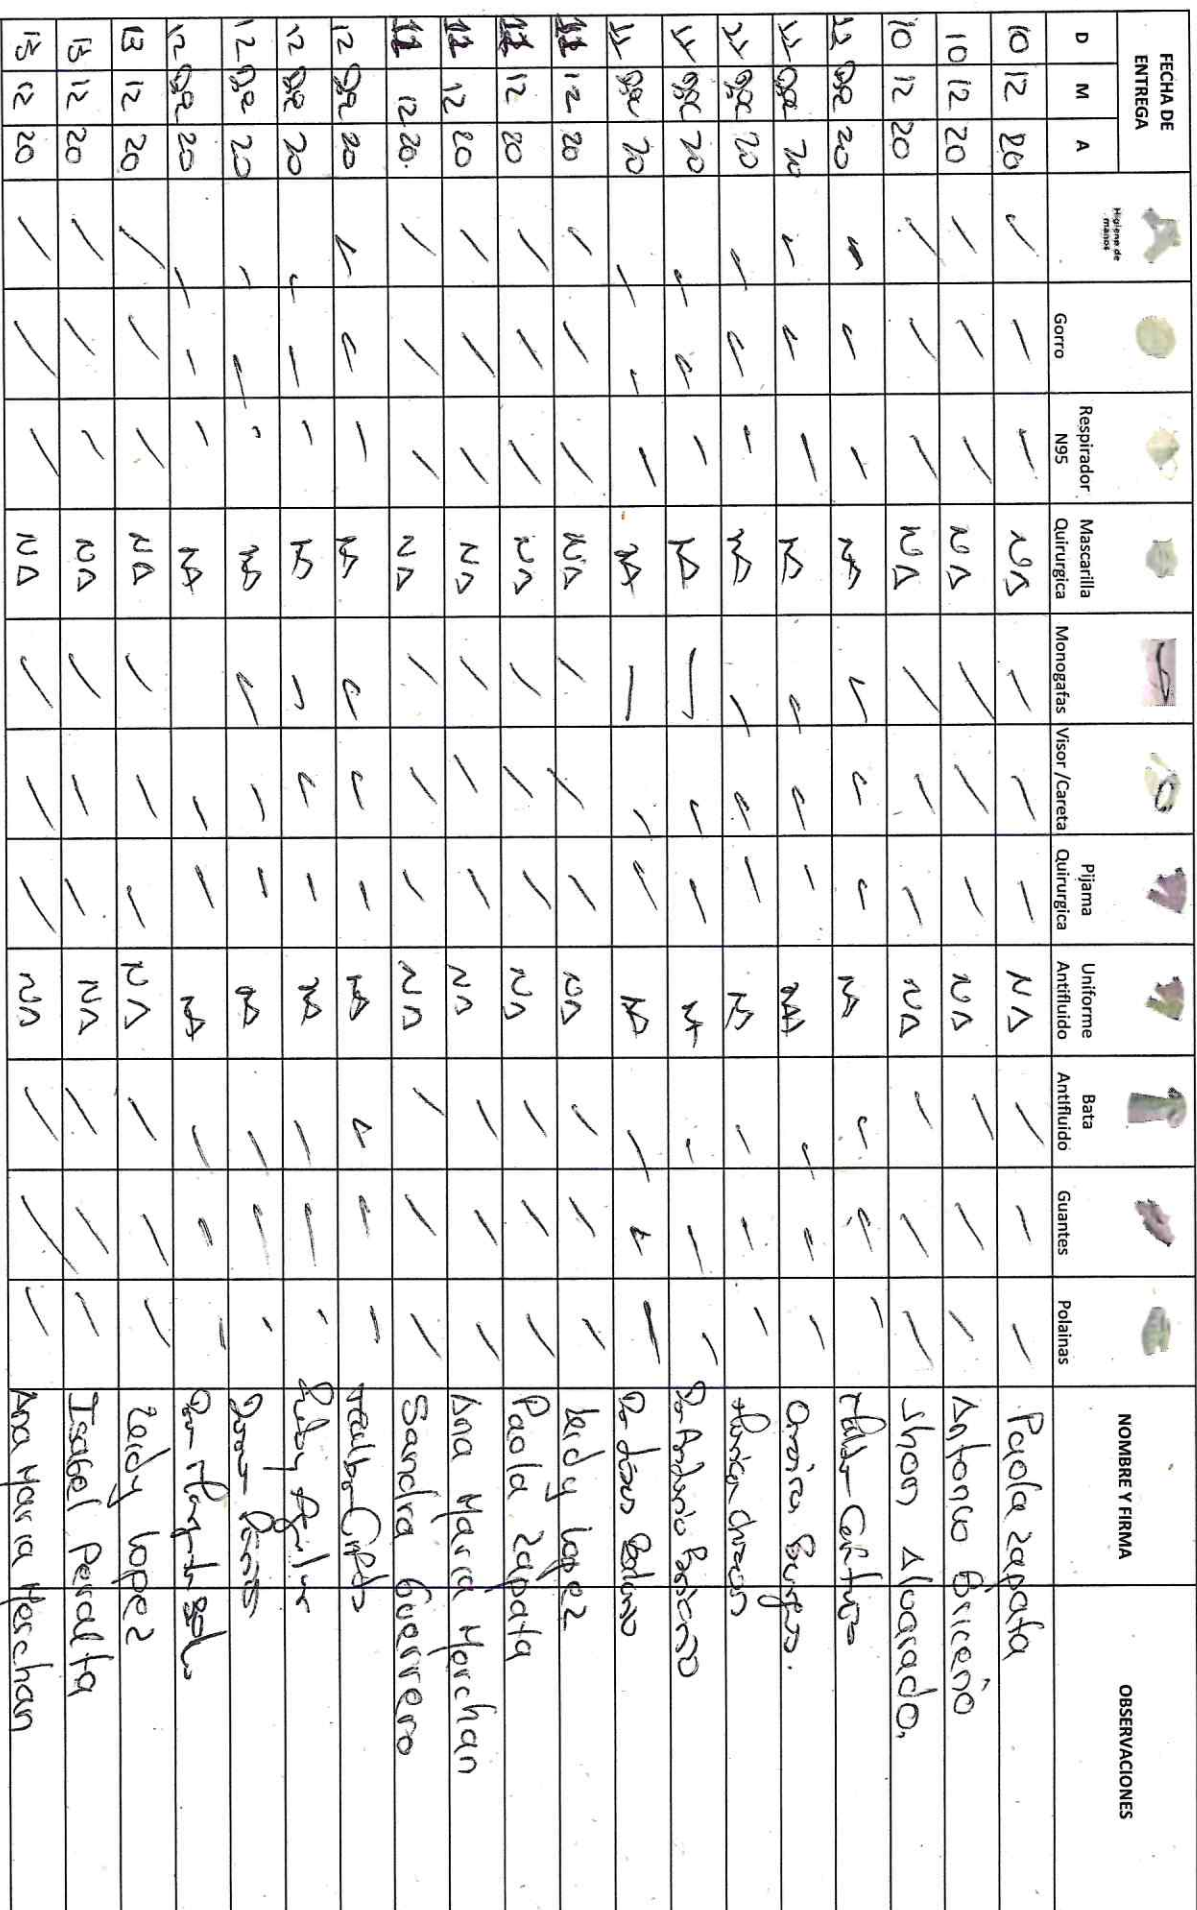 FECHA DE ENTREGA NOMBRE Y FIRMA OBSERVACIONES
D M A Higiene de manos Gorro Respirador N95 Mascarilla Quirurgica Monogafas Visor /Careta Pijama Quirurgica Uniforme Antifluido Bata Antifluido Guantes Polainas
10 12 20 NA NA Paola Zapata
10 12 20 NA NA Antonio Briceño
10 12 20 NA NA Jhon Alvarado.
11 Dic 20 NA NA
11 Dic 20 NA NA Burgos.
11 Dic 20 NA NA
11 Dic 20 NA NA Dr Antonio Briceño
11 Dic 20 NA NA Dr
11 12 20 NA NA Leidy Lopez
11 12 20 NA NA Paola Zapata
11 12 20 NA NA Ana Maria Merchan
11 12 20. NA NA Sandra Guerrero
12 Dic 20 NA NA
12 Dic 20 NA NA
12 Dic 20 NA NA
12 Dic 20 NA NA
13 12 20 NA NA Leidy Lopez
13 12 20 NA NA Isabel Peralta
13 12 20 NA NA Ana Maria Merchan